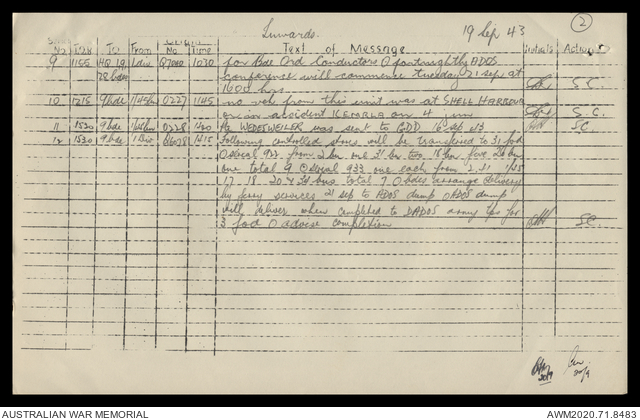 Inwards. 19 Sep 43 2
No TOR To From No Time Text of Message Initials Action
9 1155 HQ 19, 1 div Q7040 1030 for Bde Ord Conductors O fortnightly ADOS
28 bdes conference will commence tuesday 21 sep at
1600 hrs S.C.
10 1215 9 bde 0227 1145 no veh from this unit was at SHELL HARBOUR
accident KEMBLA on 4 S.C.
11 1530 9 bde 0228 WEDESWEILER was sent to GDD 16 sep 43 SC
12 1530 9 bde 1 div 1415 Following controlled stores will be transferred to 31 fod
O serial 932 from 2 bn one 21 bn two 18 bn five 28 bn
one total 9 O serial 933 one each from 2 21
17 18 20 & bns total 7 O bdes arrange delivery
by ferry services 21 sep to ADOS dump O ADOS dump
will deliver when completed to DADOS army tps for
3 fod O advise completion SC.
20/9 20/9
AUSTRALIAN WAR MEMORIAL AWM2020.71.8483